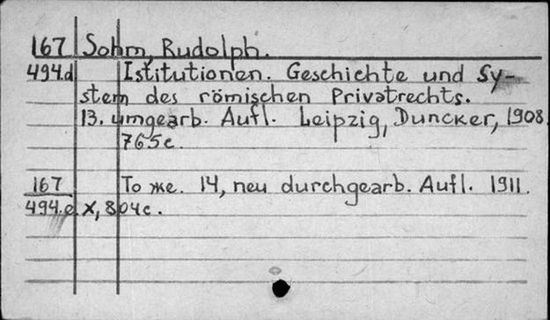 167 Sohm, Rudolph.
494.d Istitutionen. Geschichte und Sy-
stem des römischen Privatrechts.
13. umgearb. Aufl. Leipzig, Duncker, 1908.
765c.
167 То же. 14, neu durchgearb. Aufl. 1911.
494.e X, 804c.